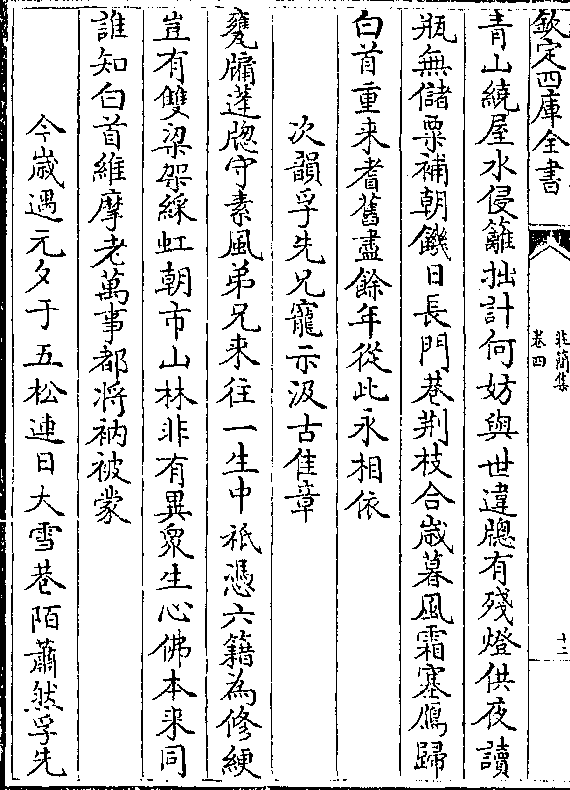 欽定四庫全書
北𥳑集
卷四
十二
青山繞屋水侵籬拙計何妨與世違牕有殘燈供夜讀
瓶無儲粟補朝饑日長門巷荆枝合歲暮風霜塞鴈歸
白首重来耆舊盡餘年從此永相依
次韻孚先兄寵示汲古佳章
甕牖蓬牕守素風弟兄来往一生中祇憑六籍為修綆
豈有雙梁架綵虹朝市山林非有異衆生心佛本来同
誰知白首維摩老萬事都將衲被蒙
今歲遇元夕于五松連日大雪巷陌蕭然孚先